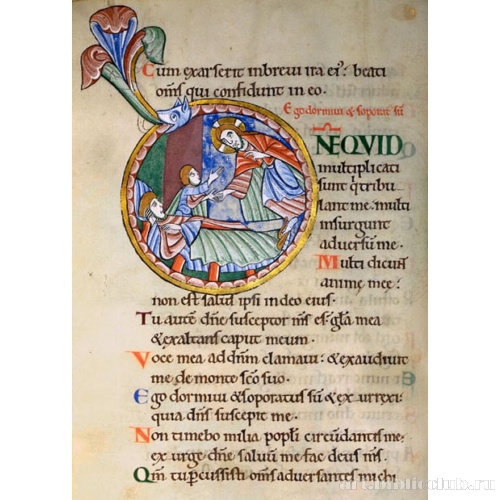 Cum exarserit in brevi ira ei': beati
om̄s qui confidunt in eo.
Ego dormivi & soporat' sū
D̄NE QVID
multiplicati
sunt q̄ tribu
lant me: multi
insurgunt
adversū me.
Multi dicunt
anime mee:
non est salus ipsi in deo eius.
Tu autē dn̄e susceptor m̄s es: gl̄a mea
& exaltans caput meum.
Voce mea ad dn̄m clamavi: & exaudivit
me de monte sc̄o suo.
Ego dormivi & soporatus sū & exurrexi:
quia dn̄s suscepit me.
Non timebo milia popl̄i circūdantis me:
exurge dn̄e salvū me fac deus m̄s.
Qm̄ tu percussisti om̄s adversantes michi
art.biblioclub.ru